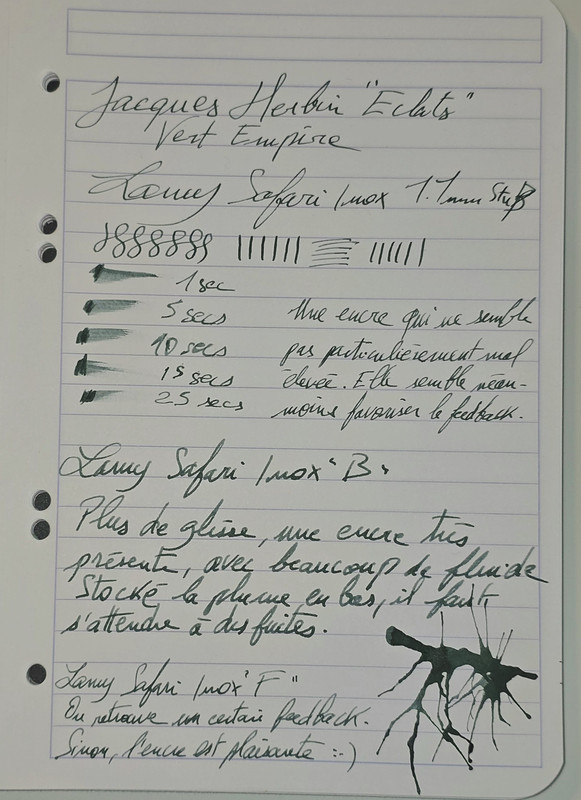 Jacques Herbin "Eclats"
Vert Empire
Lamy Safari Inox 1.1mm Stub
1 sec
5 secs
10 secs
15 secs
25 secs
Une encre qui ne semble
pas particulièrement mal
élevée. Elle semble néan-
moins favoriser le feedback.
Lamy Safari Inox "B"
Plus de glisse, une encre très
présente, avec beaucoup de fluide
Stocké la plume en bas, il faut
s'attendre à des fuites.
Lamy Safari Inox "F"
On retrouve un certain feedback.
Sinon, l'encre est plaisante :-)